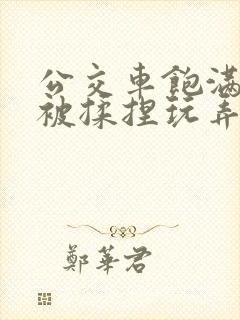 公交車飽滿
被揉捏玩弄
鄭華君